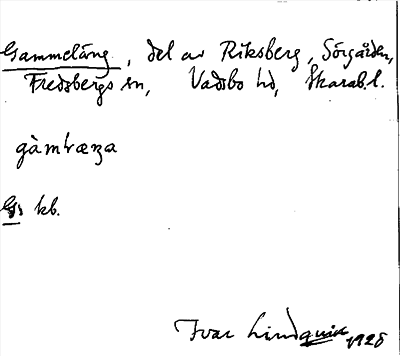 Gammeläng, del av Riksberg, Sörgården,
Fredsbergs sn, Vadsbo hd, Skarab.l.
gàmḷæŋa
G:s kb.
Ivar Lindquist 1928